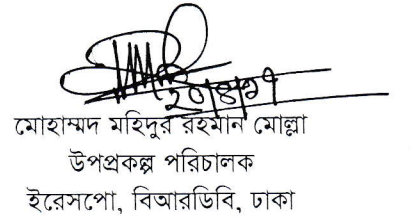 ২০/৪/১৭
মোহাম্মদ মহিদুর রহমান মোল্লা
উপপ্রকল্প পরিচালক
ইরেসপো, বিআরডিবি, ঢাকা